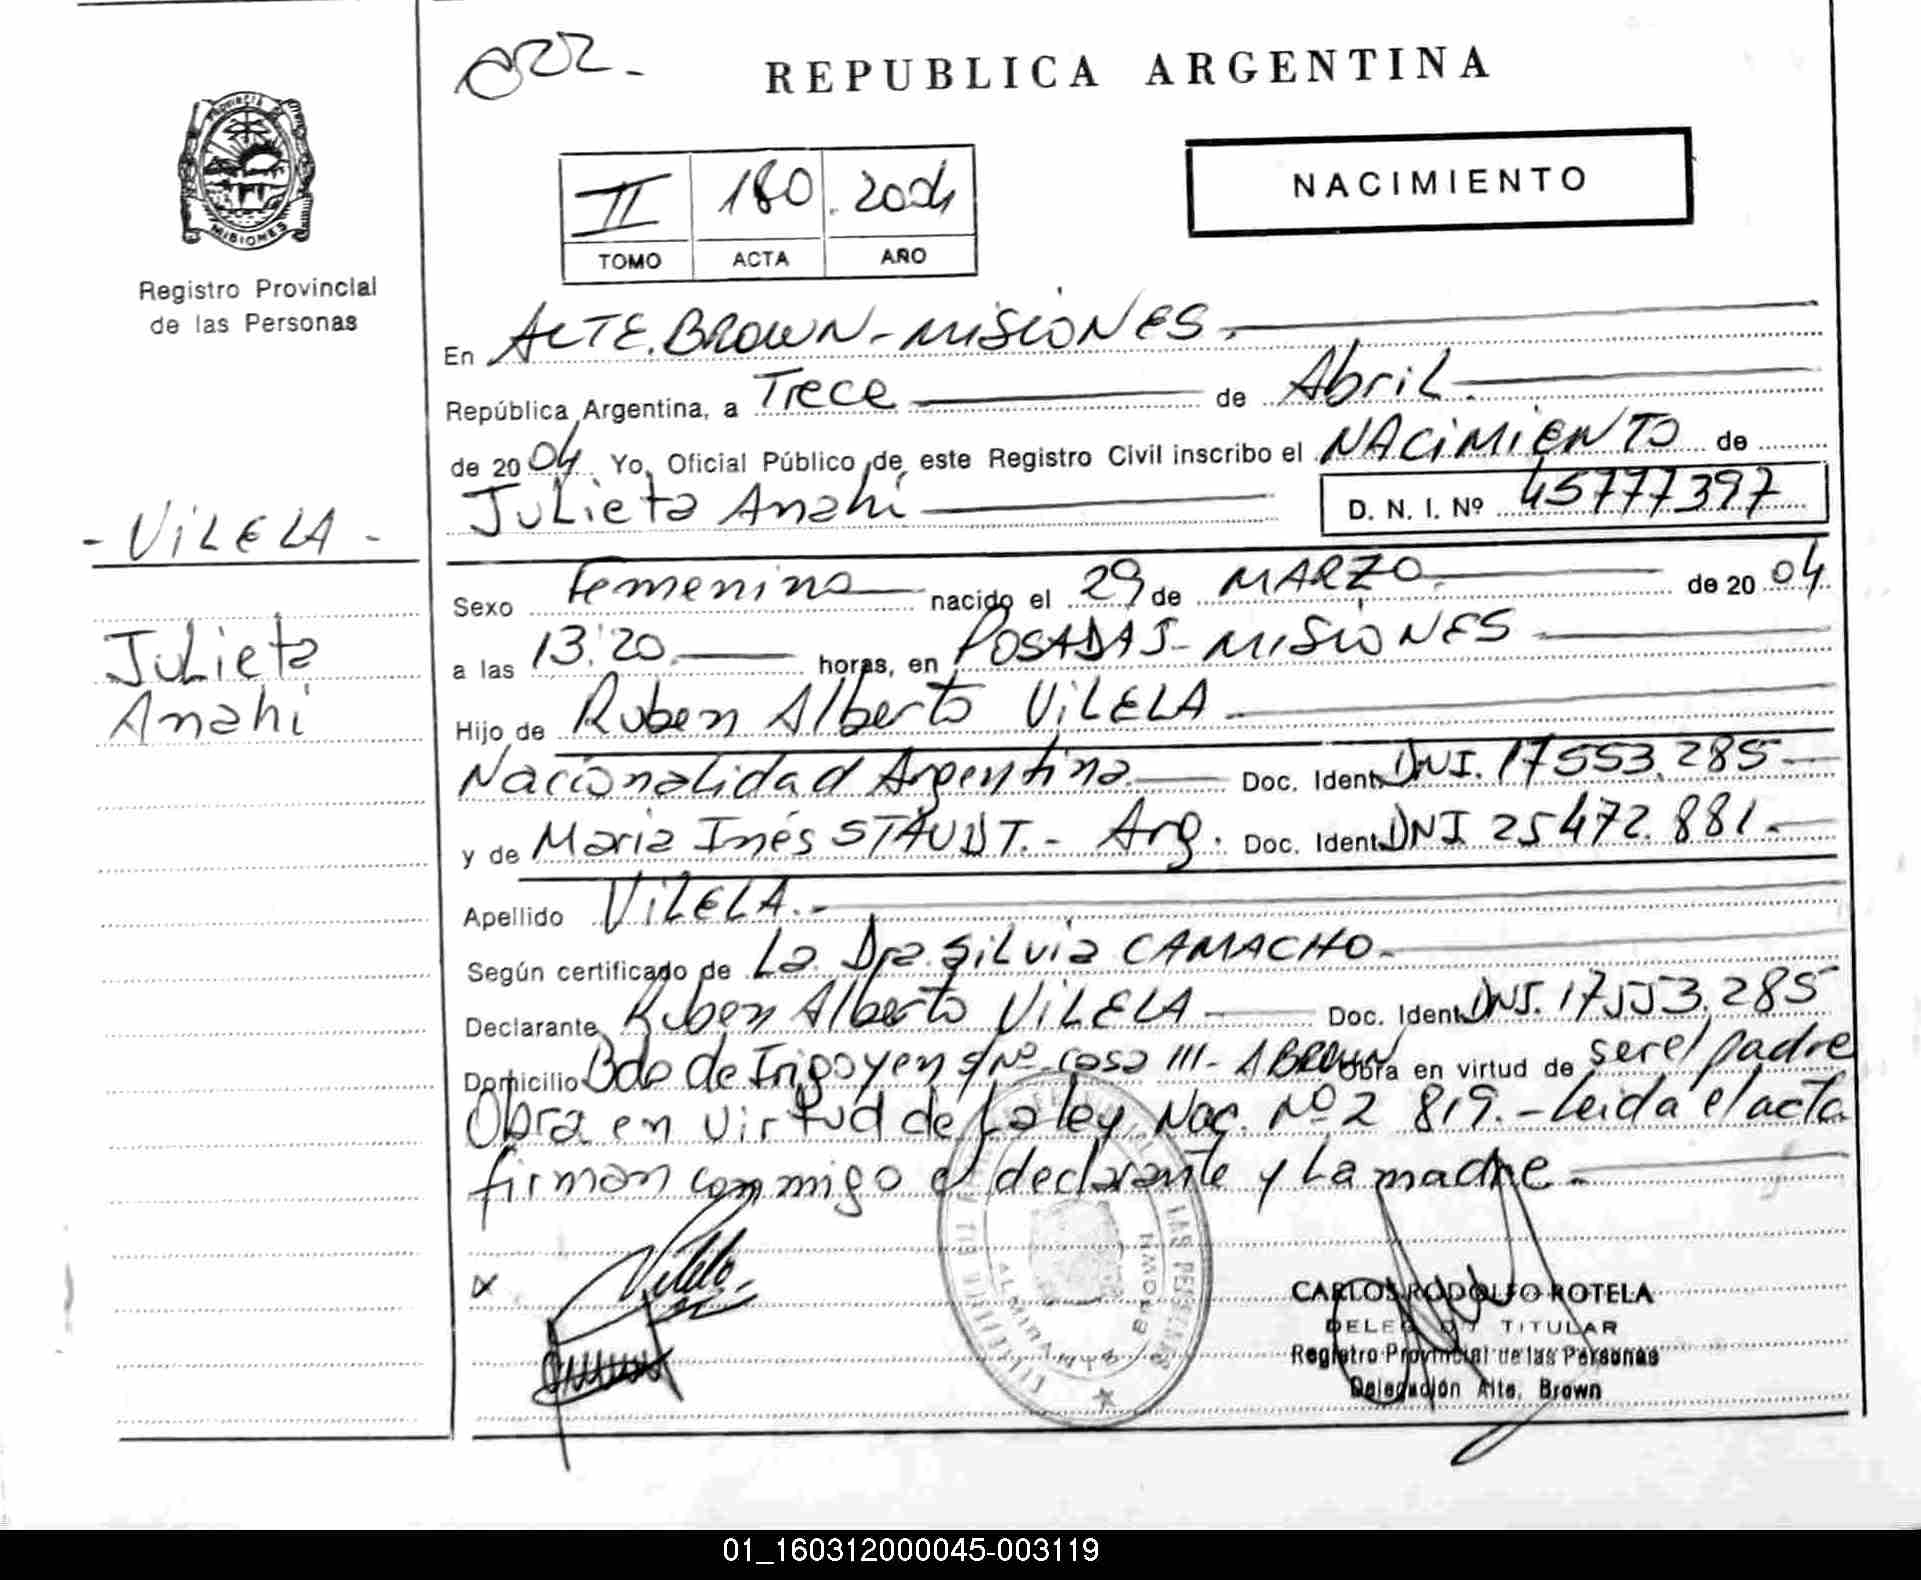 822-
REPUBLICA ARGENTINA
NACIMIENTO
II 180 2004
TOMO ACTA AÑO
PROVINCIA
MISIONES
Registro Provincial
de las Personas
En ALTE. BROWN - MISIONES.
República Argentina, a Trece de Abril
de 2004 Yo, Oficial Público de este Registro Civil inscribo el NACIMIENTO de
Julieta Anahi D. N. I. Nº 45777397
- VILELA -
Julieta
Anahi
Sexo femenino nacido el 29 de MARZO de 2004
a las 13:20 horas, en POSADAS - MISIONES
Hijo de Ruben Alberto VILELA
Nacionalidad Argentina Doc. Ident. DNI. 17553.285
y de Maria Inés STAUDT.- Arg. Doc. Ident. DNI 25472.881.-
Apellido VILELA.-
Según certificado de La Dra. Silvia CAMACHO.-
Declarante Ruben Alberto VILELA Doc. Ident. DNI. 17553.285
Domicilio Bdo de Irigoyen s/Nº casa 111 - A BROWN Obra en virtud de ser el padre
Obra en virtud de La ley. Nac. Nº 2 819.- Leida el acta
firman conmigo el declarante y La madre.-
x Vilela
LAS PERSONAS
ALMIRANTE BROWN
CARLOS RODOLFO ROTELA
DELEGADO TITULAR
Registro Provincial de las Personas
Delegación Alte. Brown
01_160312000045-003119